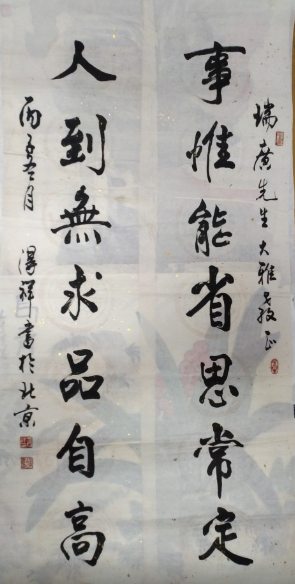 瑞廣先生大雅教正
事惟能省思常定
人到無求品自高
丙月澤祥書於北京